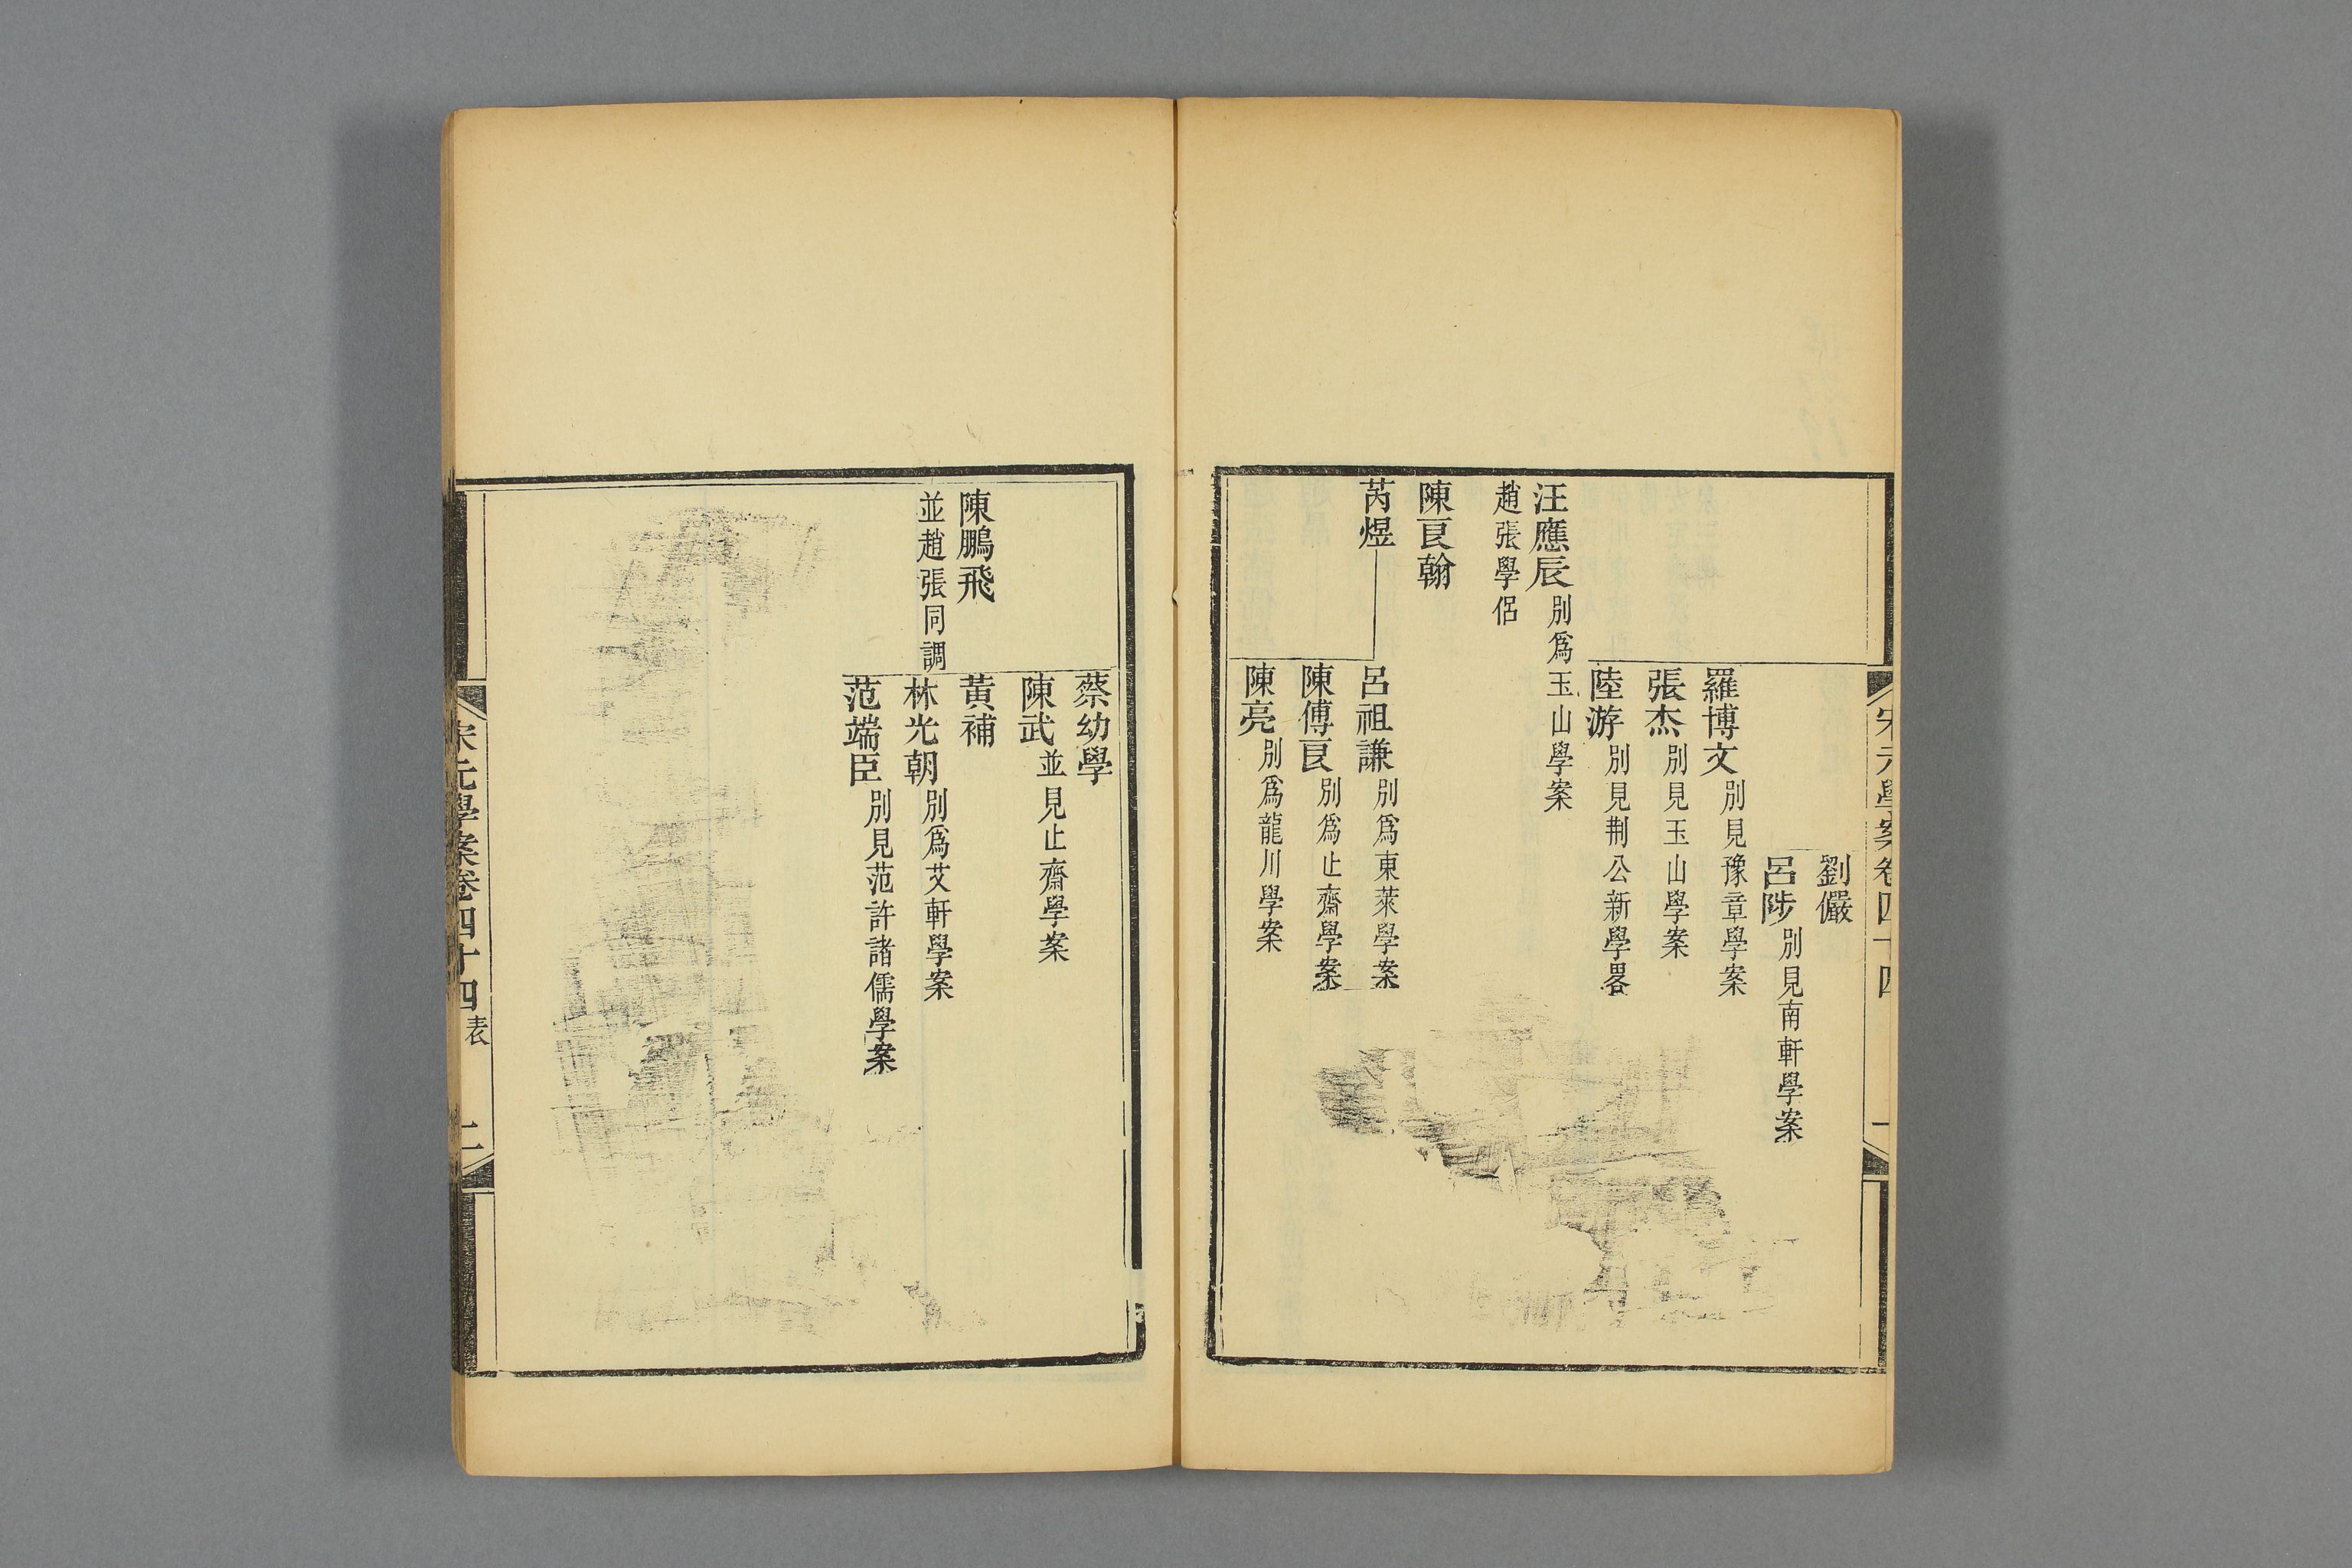 宋元學案卷四十四
劉儼
呂陟別見南軒學案
羅博文別見豫章學案
張杰別見玉山學案
陸游別見荆公新學畧
汪應辰別爲玉山學案
趙張學侶
陳良翰
芮煜
呂祖謙別爲東萊學案
陳傅良別爲止齋學案
陳亮別爲龍川學案
蔡幼學
陳武並見止齋學案
陳鵬飛
黃補
並趙張同調
林光朝別爲艾軒學案
范端臣別見范許諸儒學案
宋元學案卷四十四表
二